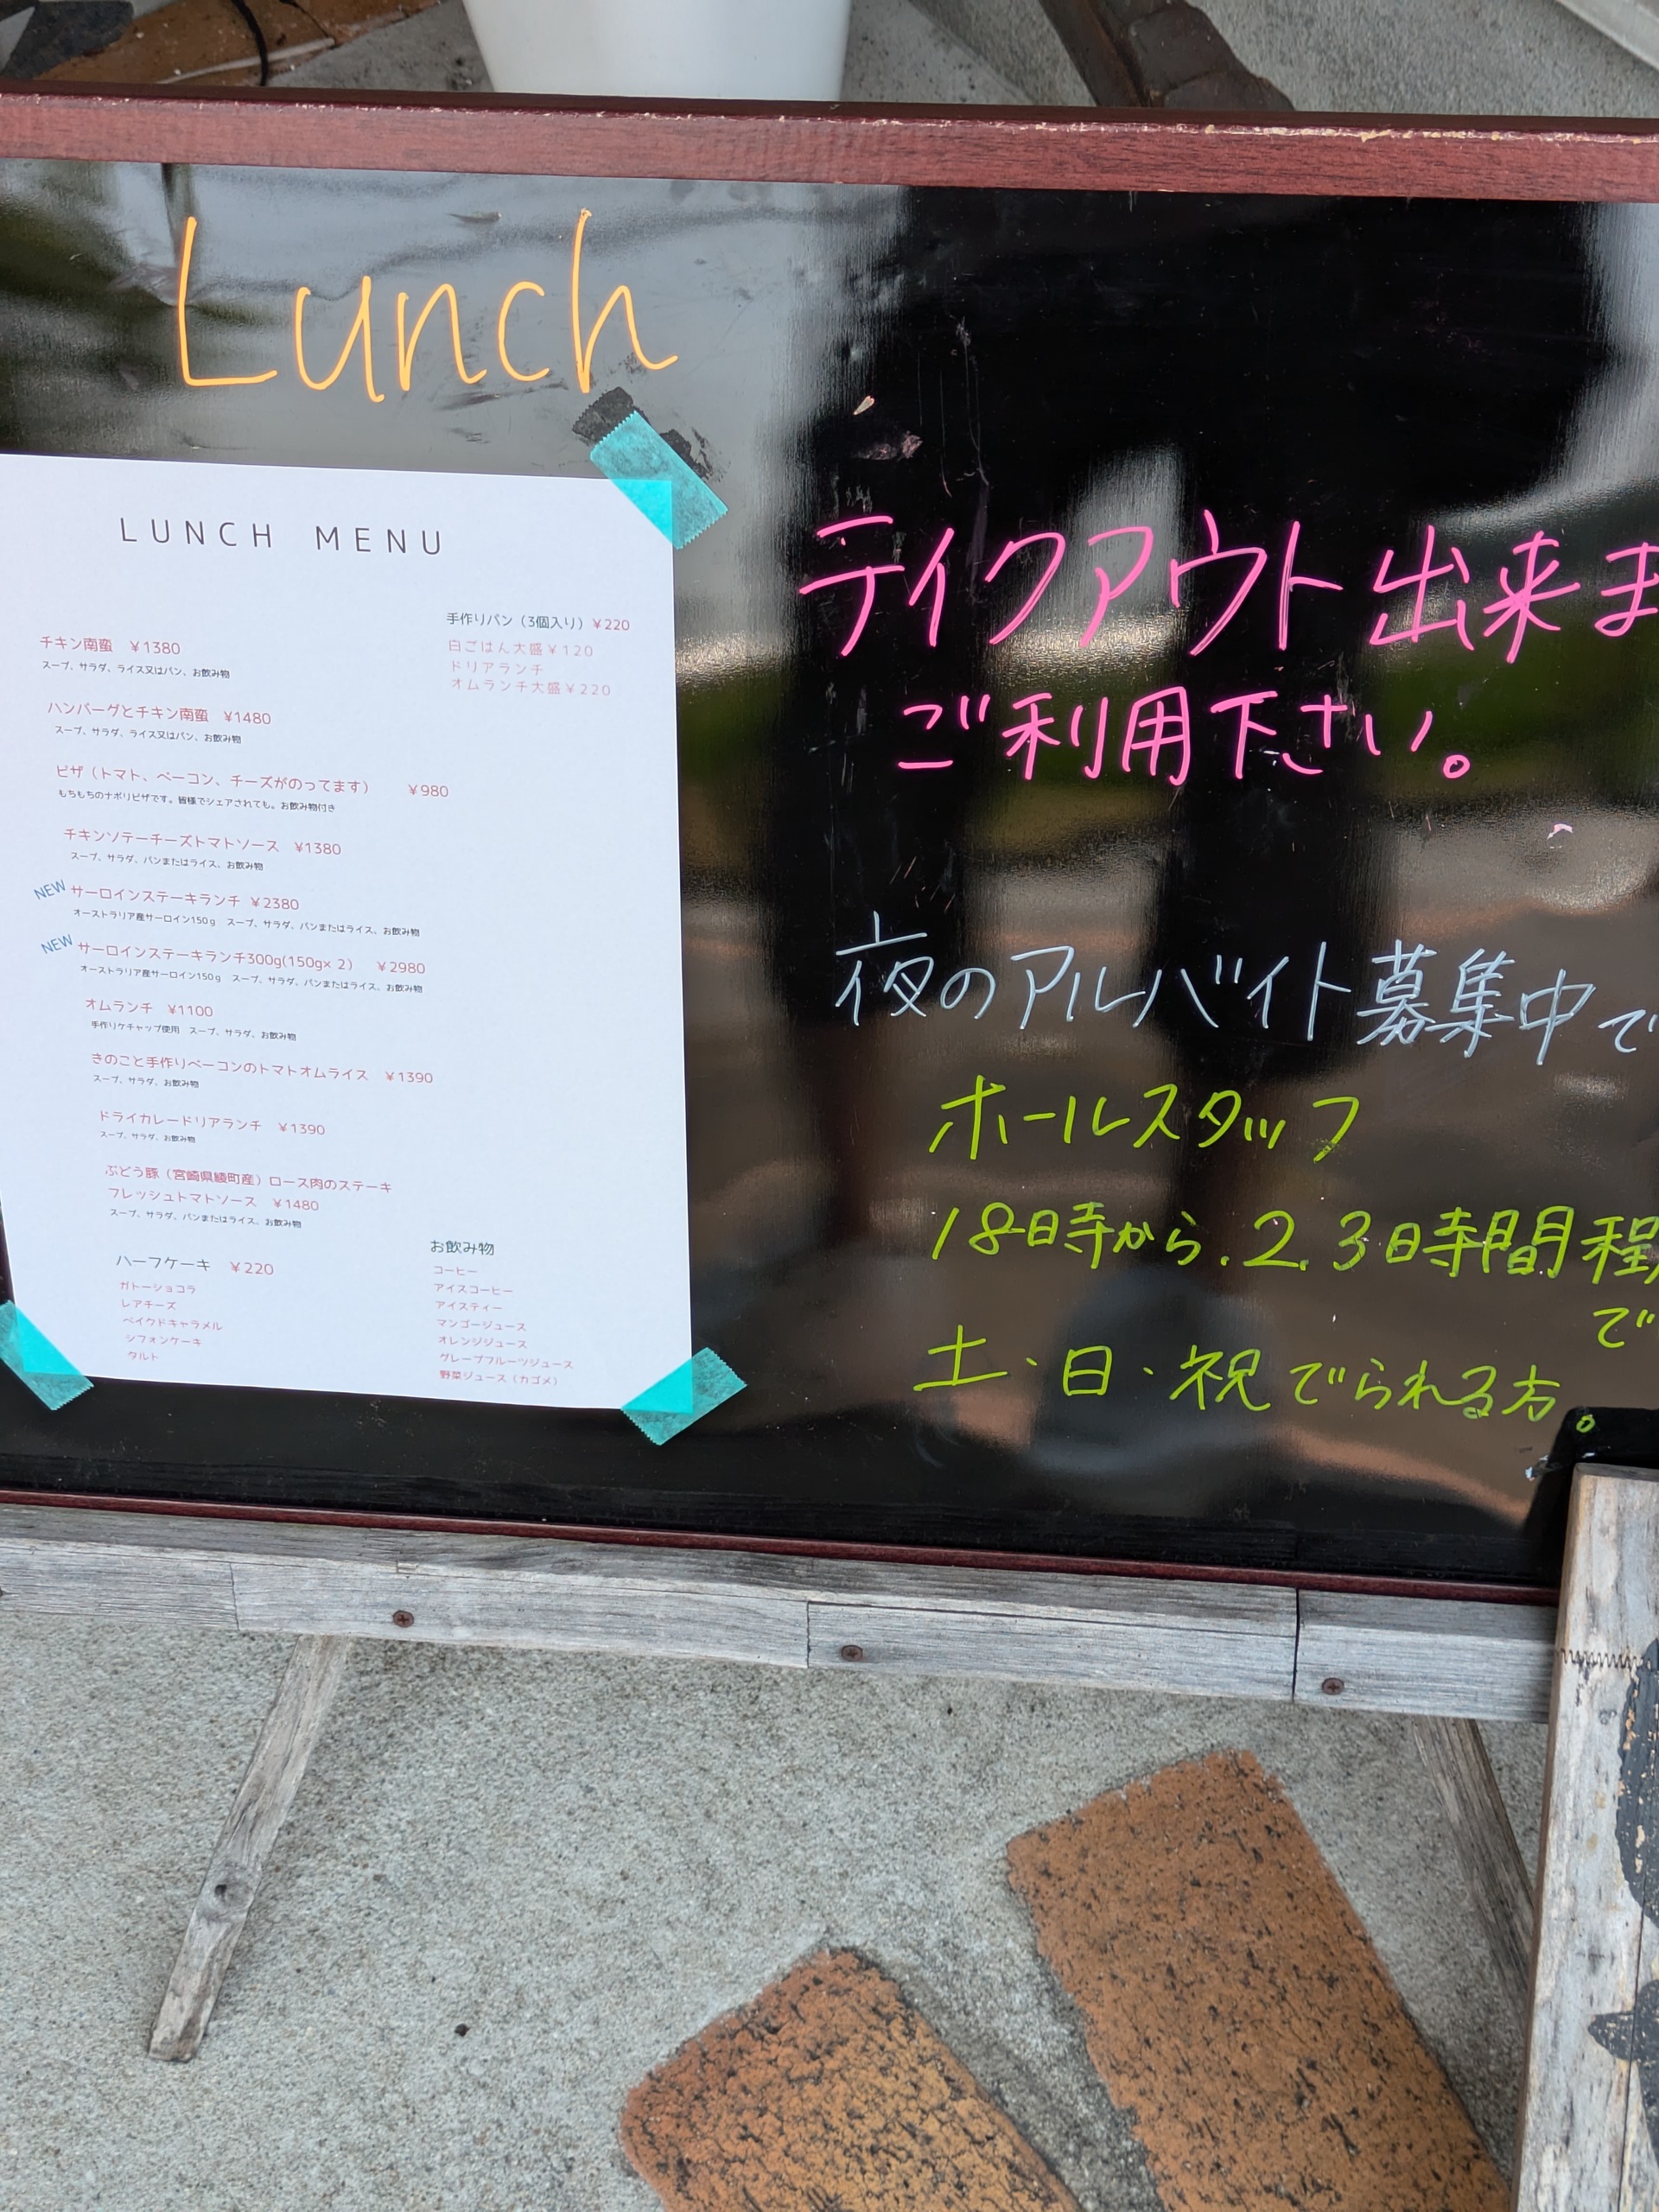 Lunch
LUNCH MENU
手作りパン（3個入り）¥220
白ごはん大盛¥120
ドリアランチ
オムランチ大盛¥220
チキン南蛮　¥1380
スープ、サラダ、ライス又はパン、お飲み物
ハンバーグとチキン南蛮　¥1480
スープ、サラダ、ライス又はパン、お飲み物
ピザ（トマト、ベーコン、チーズがのってます）　¥980
もちもちのナポリピザです。皆様でシェアされても。お飲み物付き
チキンソテーチーズトマトソース　¥1380
スープ、サラダ、パンまたはライス、お飲み物
NEW サーロインステーキランチ ¥2380
オーストラリア産サーロイン150ｇ　スープ、サラダ、パンまたはライス、お飲み物
NEW サーロインステーキランチ300g(150g×２)　¥2980
オーストラリア産サーロイン150ｇ　スープ、サラダ、パンまたはライス、お飲み物
オムランチ　¥1100
手作りケチャップ使用　スープ、サラダ、お飲み物
きのこと手作りベーコンのトマトオムライス　¥1390
スープ、サラダ、お飲み物
ドライカレードリアランチ　¥1390
スープ、サラダ、お飲み物
ぶどう豚（宮崎県綾町産）ロース肉のステーキ
フレッシュトマトソース　¥1480
スープ、サラダ、パンまたはライス、お飲み物
ハーフケーキ　¥220
ガトーショコラ
レアチーズ
ベイクドキャラメル
シフォンケーキ
タルト
お飲み物
コーヒー
アイスコーヒー
アイスティー
マンゴージュース
オレンジジュース
グレープフルーツジュース
野菜ジュース（カゴメ）
テイクアウト出来ま
ご利用下さい。
夜のアルバイト募集中で
ホールスタッフ
18時から.2.3時間程
で
土・日・祝でられる方。